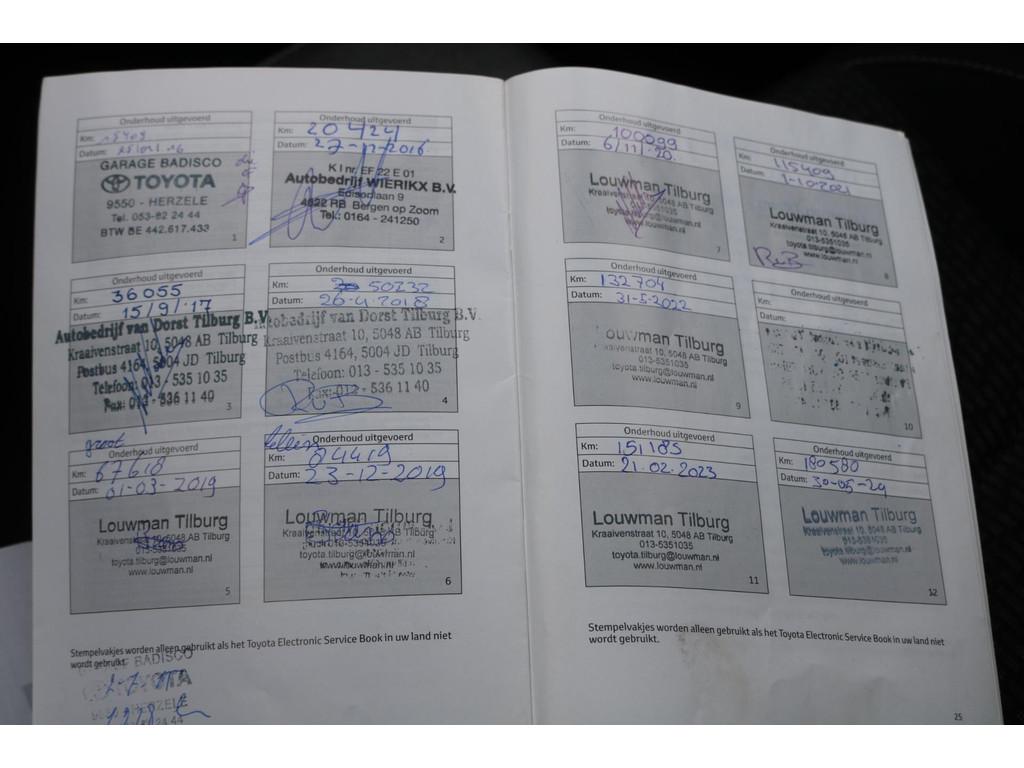 Onderhoud uitgevoerd
Km: 15409
Datum:
GARAGE BADISCO
TOYOTA
9550 - HERZELE
Tel. 053-62 24 44
BTW BE 442.617.433
1
Onderhoud uitgevoerd
Km: 20424
Datum: 27-11-2016
K I nr. EF 22 E 01
Autobedrijf WIERIKX B.V.
Edisonlaan 9
4622 RB Bergen op Zoom
Tel.: 0164 - 241250
2
Onderhoud uitgevoerd
Km: 36055
Datum: 15/9/17
Autobedrijf van Dorst Tilburg B.V.
Kraaivenstraat 10, 5048 AB Tilburg
Postbus 4164, 5004 JD Tilburg
Telefoon: 013 - 535 10 35
Fax: 013 - 536 11 40
3
Onderhoud uitgevoerd
Km: 50232
Datum: 26-4-2018
Autobedrijf van Dorst Tilburg B.V.
Kraaivenstraat 10, 5048 AB Tilburg
Postbus 4164, 5004 JD Tilburg
Telefoon: 013 - 535 10 35
Fax: 013 - 536 11 40
4
groot
Onderhoud uitgevoerd
Km: 67618
Datum: 01-03-2019
Louwman Tilburg
Kraaivenstraat 10, 5048 AB Tilburg
013-5351035
toyota.tilburg@louwman.nl
www.louwman.nl
5
kleen
Onderhoud uitgevoerd
Km: 84419
Datum: 23-12-2019
Louwman Tilburg
toyota.tilburg@louwman.nl
www.louwman.nl
6
Stempelvakjes worden alleen gebruikt als het Toyota Electronic Service Book in uw land niet
wordt gebruikt.
BADISCO
TOYOTA
HERZELE
24 44
Onderhoud uitgevoerd
Km: 100099
Datum: 6/11/20.
Louwman Tilburg
Kraaivenstraat 10, 5048 AB Tilburg
toyota.tilburg@louwman.nl
7
Onderhoud uitgevoerd
Km: 115409
Datum: 1-10-2021
Louwman Tilburg
Kraaivenstraat 10, 5048 AB Tilburg
013-5351035
toyota.tilburg@louwman.nl
www.louwman.nl
8
Onderhoud uitgevoerd
Km: 132704
Datum: 31-5-2022
Louwman Tilburg
Kraaivenstraat 10, 5048 AB Tilburg
013-5351035
toyota.tilburg@louwman.nl
www.louwman.nl
9
Onderhoud uitgevoerd
Km:
Datum:
10
Onderhoud uitgevoerd
Km: 151185
Datum: 21.02.2023
Louwman Tilburg
Kraaivenstraat 10, 5048 AB Tilburg
013-5351035
toyota.tilburg@louwman.nl
www.louwman.nl
11
Onderhoud uitgevoerd
Km: 180580
Datum: 30-05-24
Louwman Tilburg
Kraaivenstraat 10, 5048 AB Tilburg
013-5351035
toyota.tilburg@louwman.nl
www.louwman.nl
12
Stempelvakjes worden alleen gebruikt als het Toyota Electronic Service Book in uw land niet
wordt gebruikt.
25